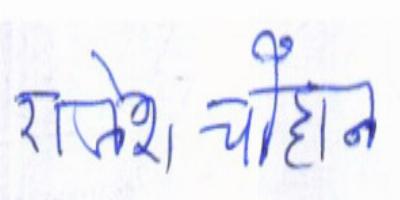 राजेश चौहान